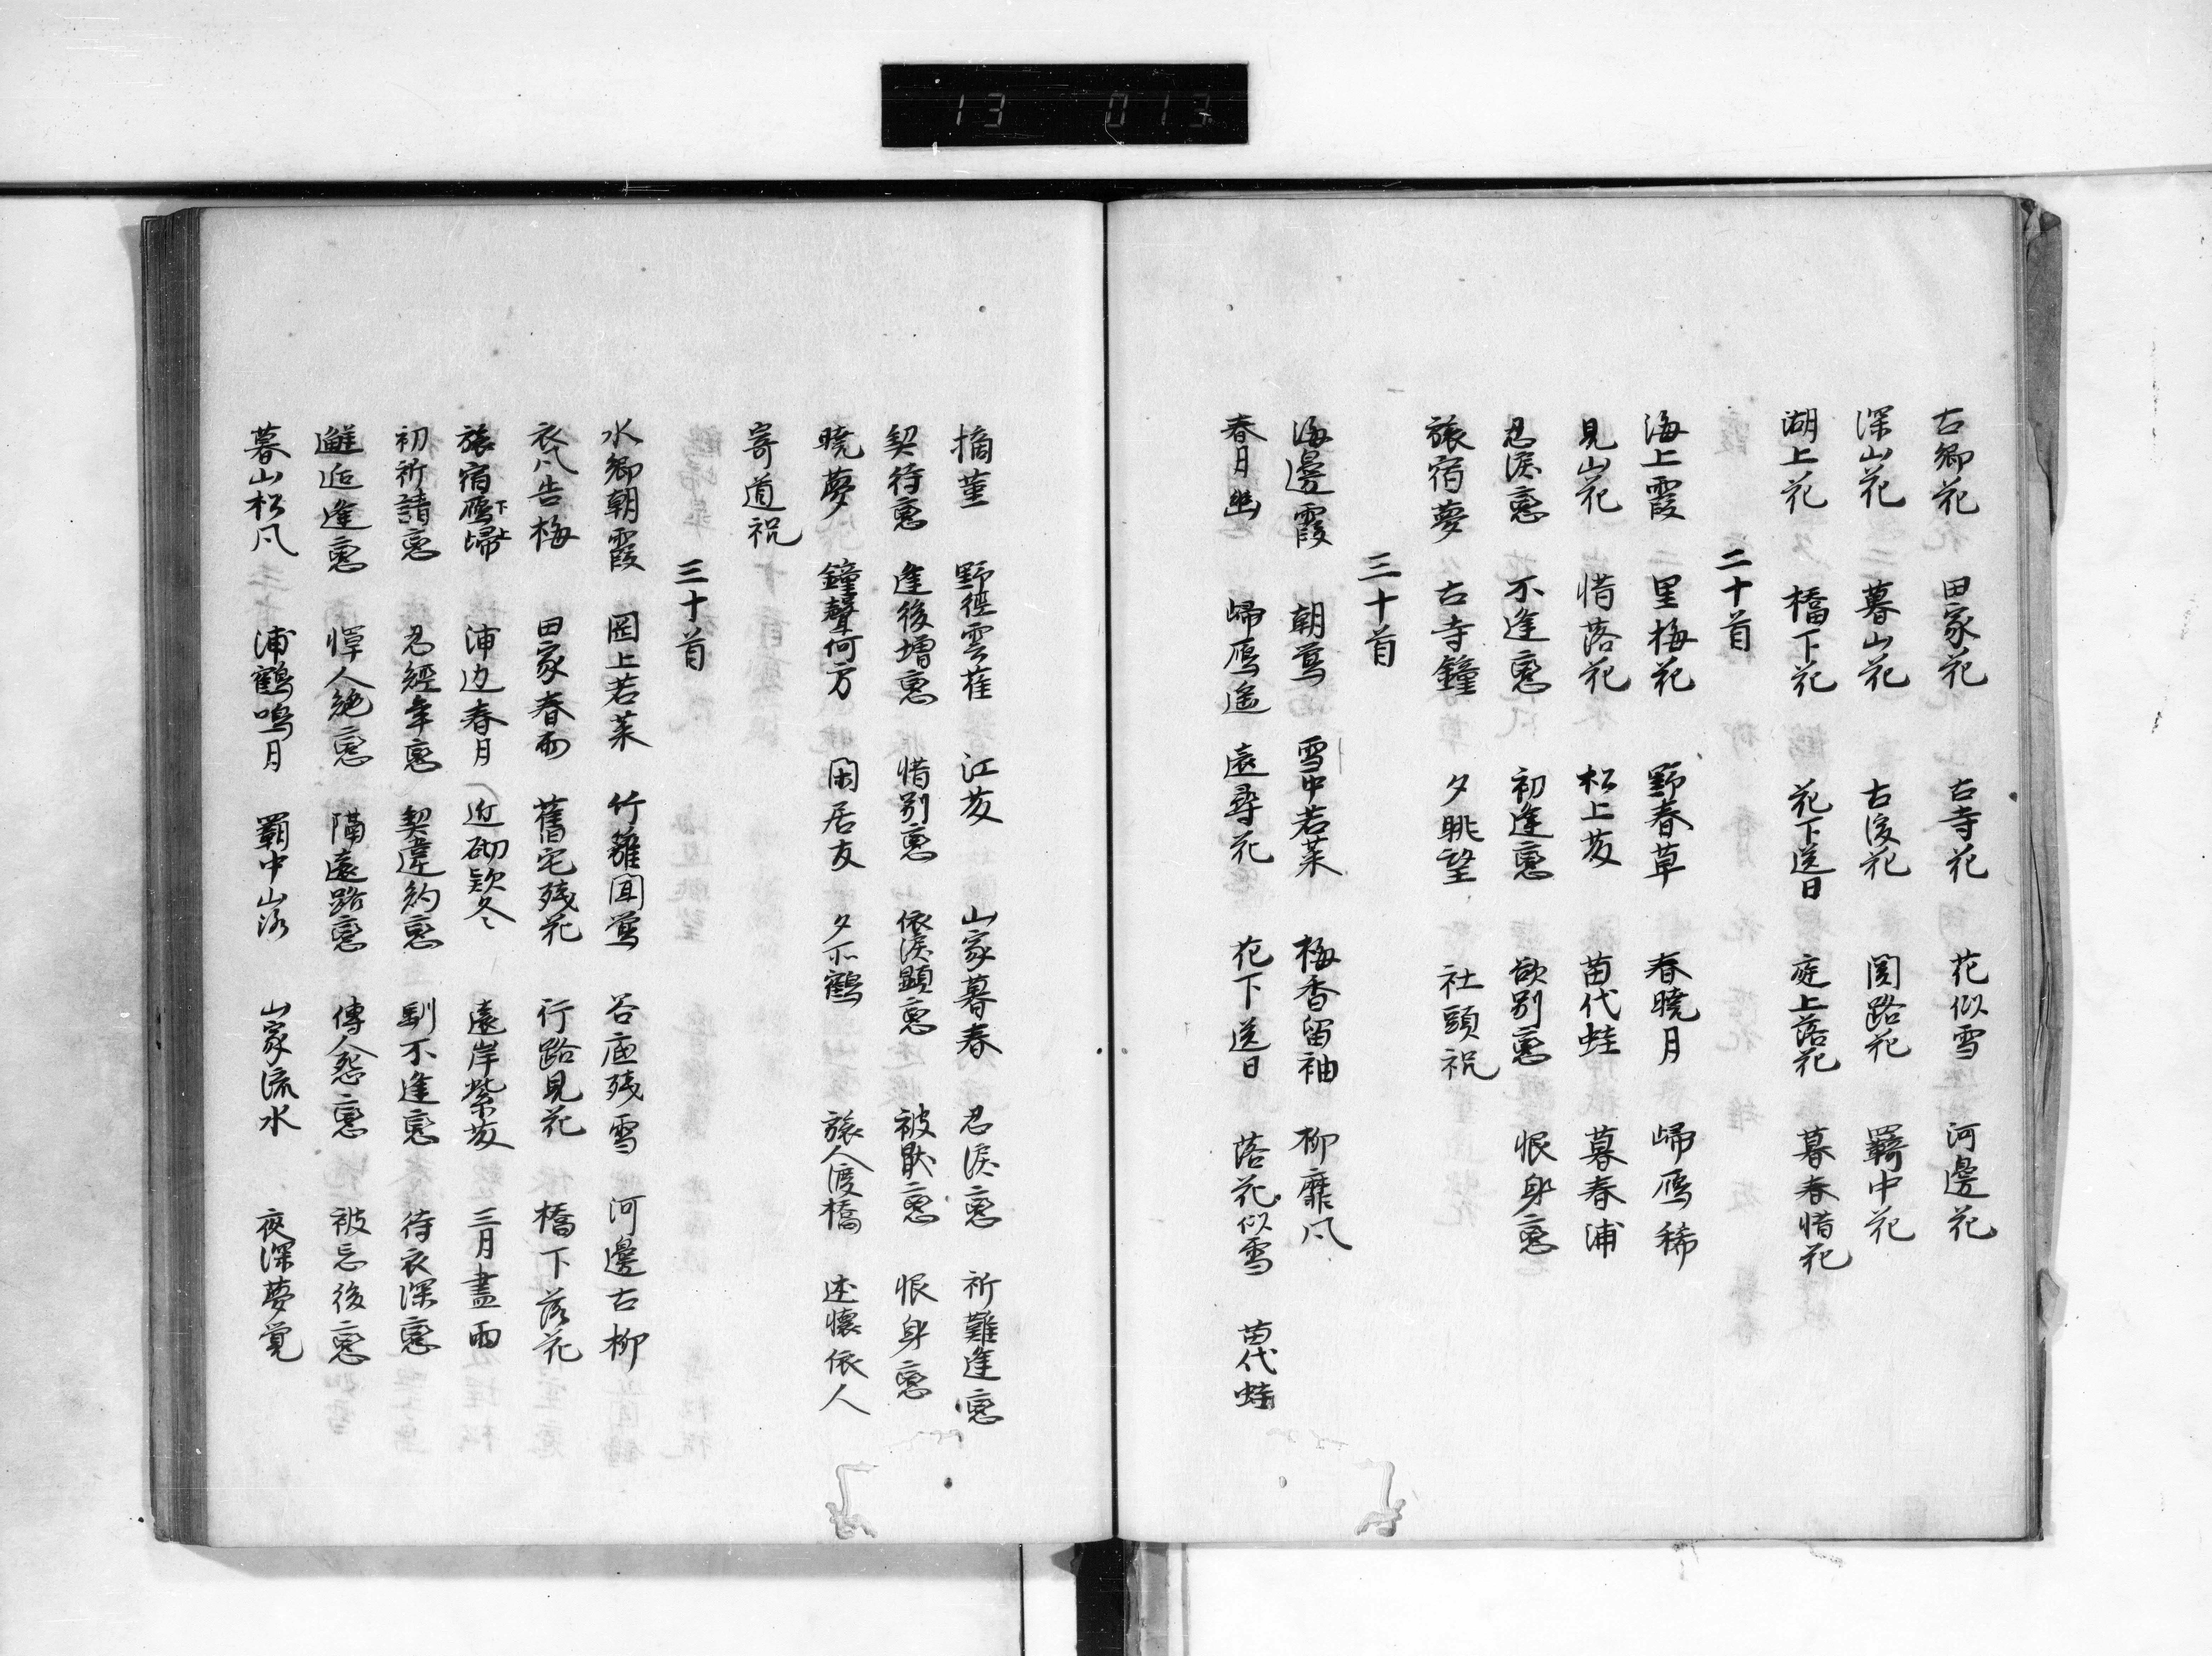 13 013
古郷花 田家花 古寺花 花似雪 河邊花
深山花 暮山花 古渡花 関路花 羇中花
湖上花 橋下花 花下送日 庭上落花 暮春惜花
二十首
海上霞 里梅花 野春草 春曉月 帰鴈稀
見山花 惜落花 松上藤 苗代蛙 暮春浦
忍涙恋 不逢恋 初逢恋 欲別恋 恨身恋
旅宿夢 古寺鐘 夕眺望 社頭祝
三十首
海邊霞 朝鴬 雪中若菜 梅香留袖 柳靡風
春月幽 帰鴈遙 遠尋花 花下送日 落花似雪 苗代蛙
摘菫 野徑雲雀 江藤 山家暮春 忍涙恋 祈難逢恋
契待恋 逢後増恋 惜別恋 依涙顕恋 被厭恋 恨身恋
曉夢 鐘聲何方 閑居友 夕 鶴 旅人渡橋 述懐依人
寄道祝
三十首
水郷朝霞 岡上若菜 竹籬聞鴬 谷底残雪 河邊古柳
衣 告梅 田家春雨 舊宅残花 行路見花 橋下落花
旅宿鴈下帰上 浦辺春月 近砌款冬 遠岸紫藤 三月盡雨
初祈請恋 忍經年恋 契違約恋 馴不逢恋 待衣深恋
邂逅逢恋 憚人絶恋 隔遠路恋 傳人怨恋 被忘後恋
暮山松風 浦鶴鳴月 羇中山路 山家流水 夜深夢覚